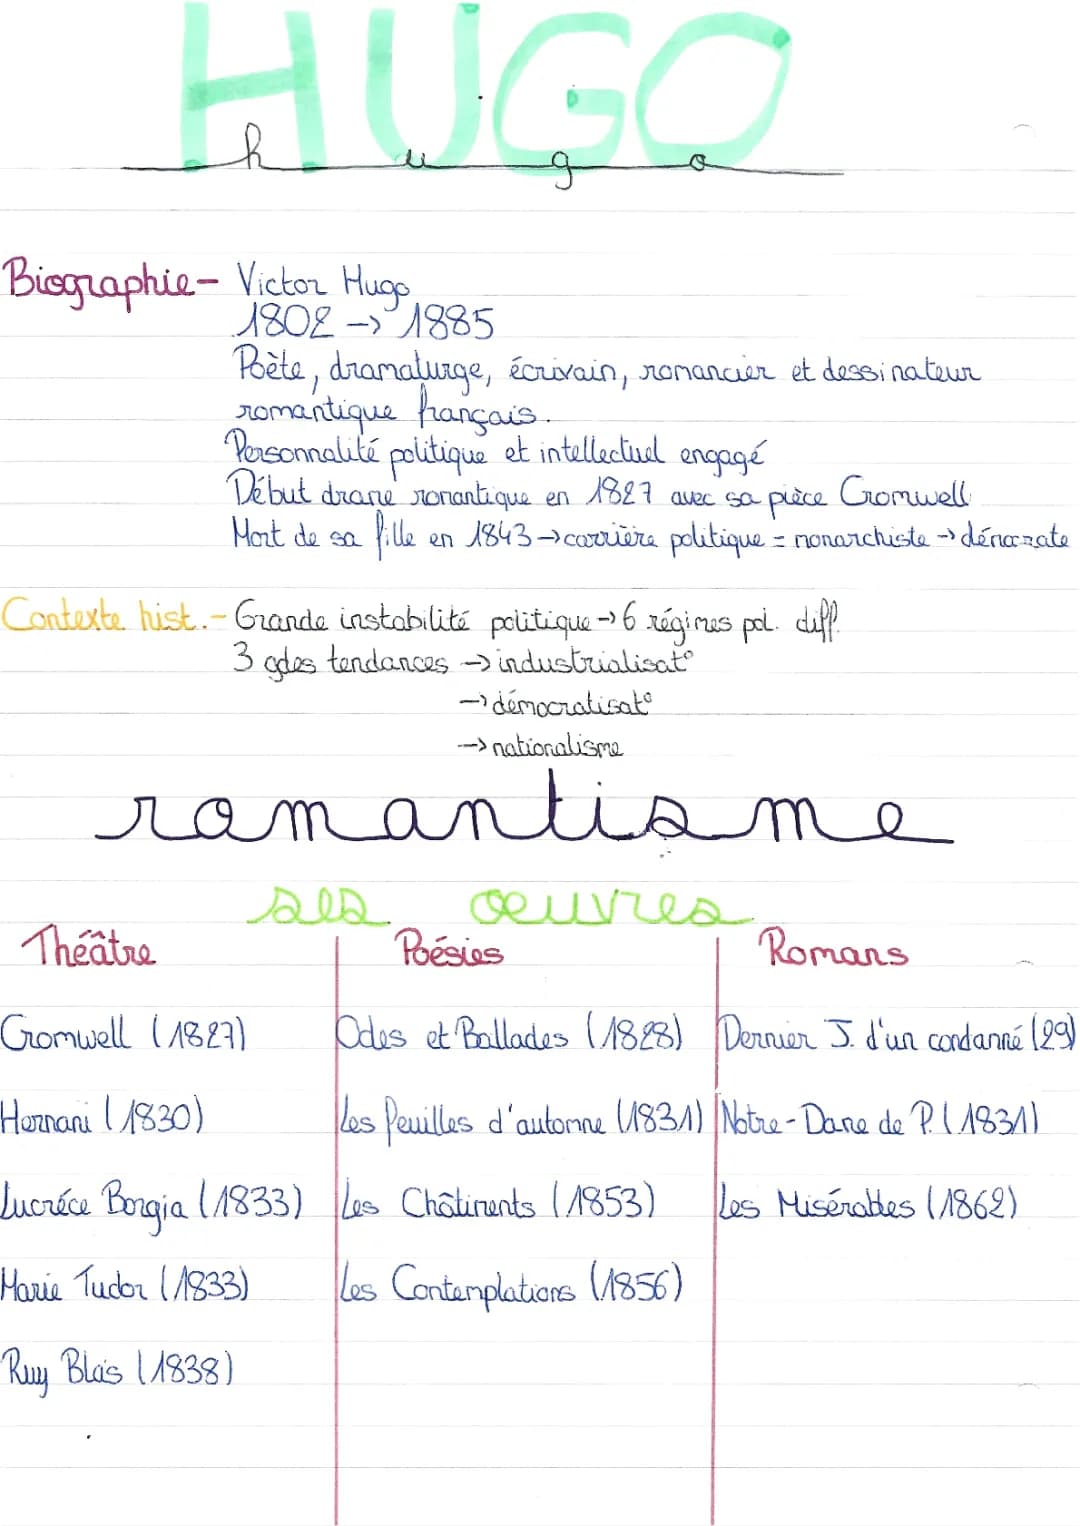 HUGO
hugo
Biographie- Victor Hugo
1802 -> 1885
Poète, dramaturge, écrivain, romancier et dessinateur
romantique français.
Personnalité politique et intellectuel engagé
Début drame romantique en 1827 avec sa pièce Cromwell
Mort de sa fille en 1843 -> carrière politique = monarchiste -> démocrate
Contexte hist.- Grande instabilité politique -> 6 régimes pol. diff.
3 gdes tendances -> industrialisat°
-> démocratisat°
-> nationalisme
romantisme
ses oeuvres
Théâtre Poésies Romans
Cromwell (1827) Odes et Ballades (1828) Dernier J. d'un condanné (29)
Hernani (1830) Les feuilles d'automne (1831) Notre-Dame de P. (1831)
Lucréce Borgia (1833) Les Châtiments (1853) Les Misérables (1862)
Marie Tudor (1833) Les Contemplations (1856)
Ruy Blas (1838)